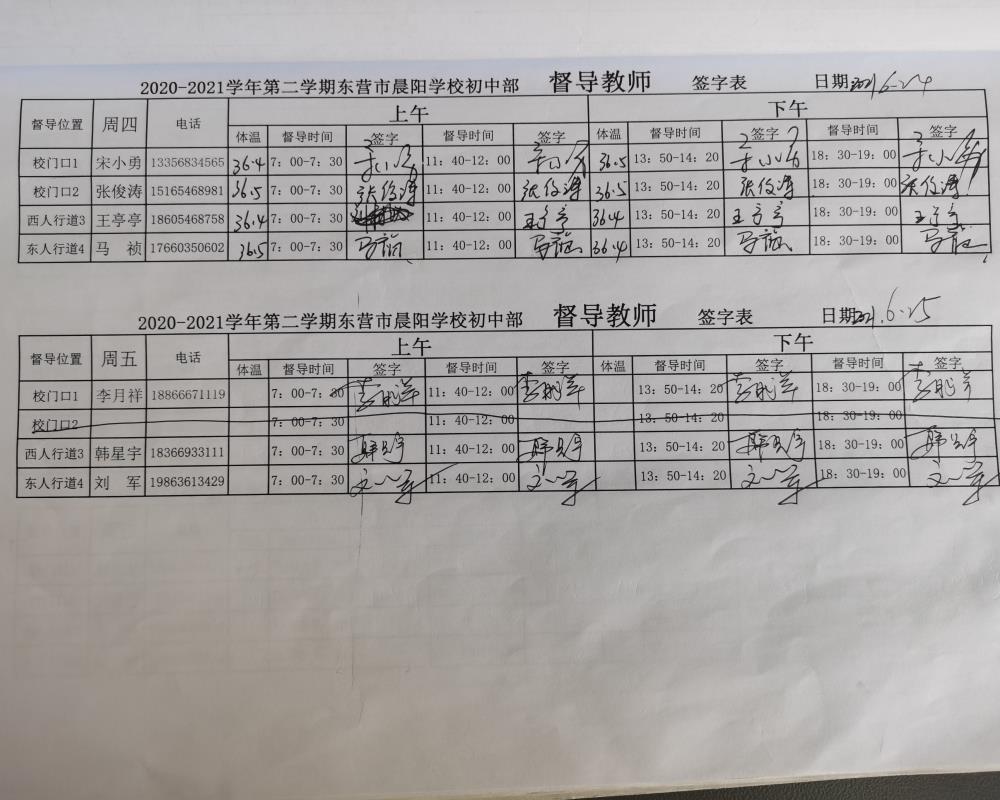 2020-2021学年第二学期东营市晨阳学校初中部 督导教师 签字表 日期2021.6-24
督导位置 周四 电话 上午 下午
体温 督导时间 签字 督导时间 签字 体温 督导时间 签字 督导时间 签字
校门口1 宋小勇 13356834565 36.4 7：00-7：30 宋小勇 11：40-12：00 宋小勇 36.5 13：50-14：20 宋小勇 18：30-19：00 宋小勇
校门口2 张俊涛 15165468981 36.5 7：00-7：30 张俊涛 11：40-12：00 张俊涛 36.5 13：50-14：20 张俊涛 18：30-19：00 张俊涛
西人行道3 王亭亭 18605468758 36.4 7：00-7：30 11：40-12：00 王亭亭 36.4 13：50-14：20 王亭亭 18：30-19：00 王亭亭
东人行道4 马 祯 17660350602 36.5 7：00-7：30 马祯 11：40-12：00 马祯 36.4 13：50-14：20 马祯 18：30-19：00 马祯
2020-2021学年第二学期东营市晨阳学校初中部 督导教师 签字表 日期2021.6-25
督导位置 周五 电话 上午 下午
体温 督导时间 签字 督导时间 签字 体温 督导时间 签字 督导时间 签字
校门口1 李月祥 18866671119 7：00-7：30 李月祥 11：40-12：00 李月祥 13：50-14：20 李月祥 18：30-19：00 李月祥
校门口2 7：00-7：30 11：40-12：00 13：50-14：20 18：30-19：00
西人行道3 韩星宇 18366933111 7：00-7：30 韩星宇 11：40-12：00 韩星宇 13：50-14：20 韩星宇 18：30-19：00 韩星宇
东人行道4 刘 军 19863613429 7：00-7：30 刘军 11：40-12：00 刘军 13：50-14：20 刘军 18：30-19：00 刘军